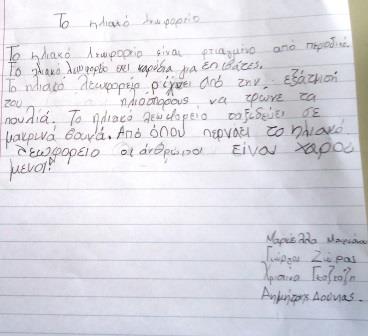 Το ηλιακό λεωφορείο
Το ηλιακό λεωφορείο είναι φτιαγμένο από περοδικά.
Το ηλιακό λεωφορείο έχει καρύδια για επιβάτες.
Το ηλιακό λεωφορείο ρίχνει από την εξάτμιση
του ηλιόσπορους να τρώνε τα
πουλιά. Το ηλιακό λεωφορείο ταξιδεύει σε
μακρινά βουνά. Από όπου περνάει το ηλιακό
λεωφορείο οι άνθρωποι είναι χαρού
μενοι!
Μαριέλλα
Γιώργος Ζώρας
Χριστίνα
Δημήτρης Δούκας.